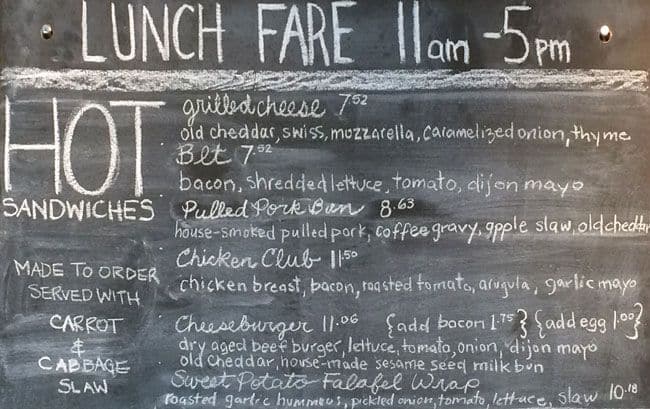 LUNCH FARE 11am - 5pm
HOT
SANDWICHES
MADE TO ORDER
SERVED WITH
CARROT
&
CABBAGE
SLAW
grilled cheese 7.52
old cheddar, swiss, mozzarella, caramelized onion, thyme
Blt 7.52
bacon, shredded lettuce, tomato, dijon mayo
Pulled Pork Bun 8.63
house-smoked pulled pork, coffee gravy, apple slaw, old cheddar
Chicken Club 11.50
chicken breast, bacon, roasted tomato, arugula, garlic mayo
Cheeseburger 11.06 {add bacon 1.75} {add egg 1.00}
dry aged beef burger, lettuce, tomato, onion, dijon mayo
old cheddar, house-made sesame seed milk bun
Sweet Potato Falafel Wrap
roasted garlic hummus, pickled onion, tomato, lettuce, slaw 10.18